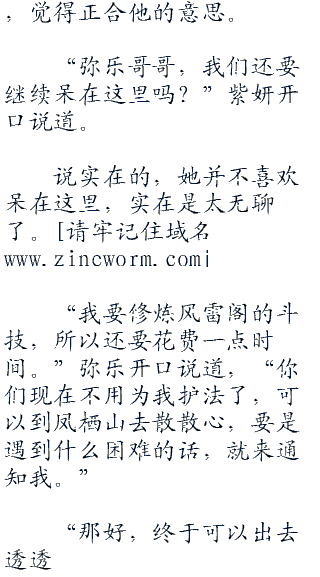 ，觉得正合他的意思。
“弥乐哥哥，我们还要
继续呆在这里吗？”紫妍开
口说道。
说实在的，她并不喜欢
呆在这里，实在是太无聊
了。[请牢记住域名
www.zincworm.com]
“我要修炼风雷阁的斗
技，所以还要花费一点时
间。”弥乐开口说道，“你
们现在不用为我护法了，可
以到凤栖山去散散心，要是
遇到什么困难的话，就来通
知我。”
“那好，终于可以出去
透透